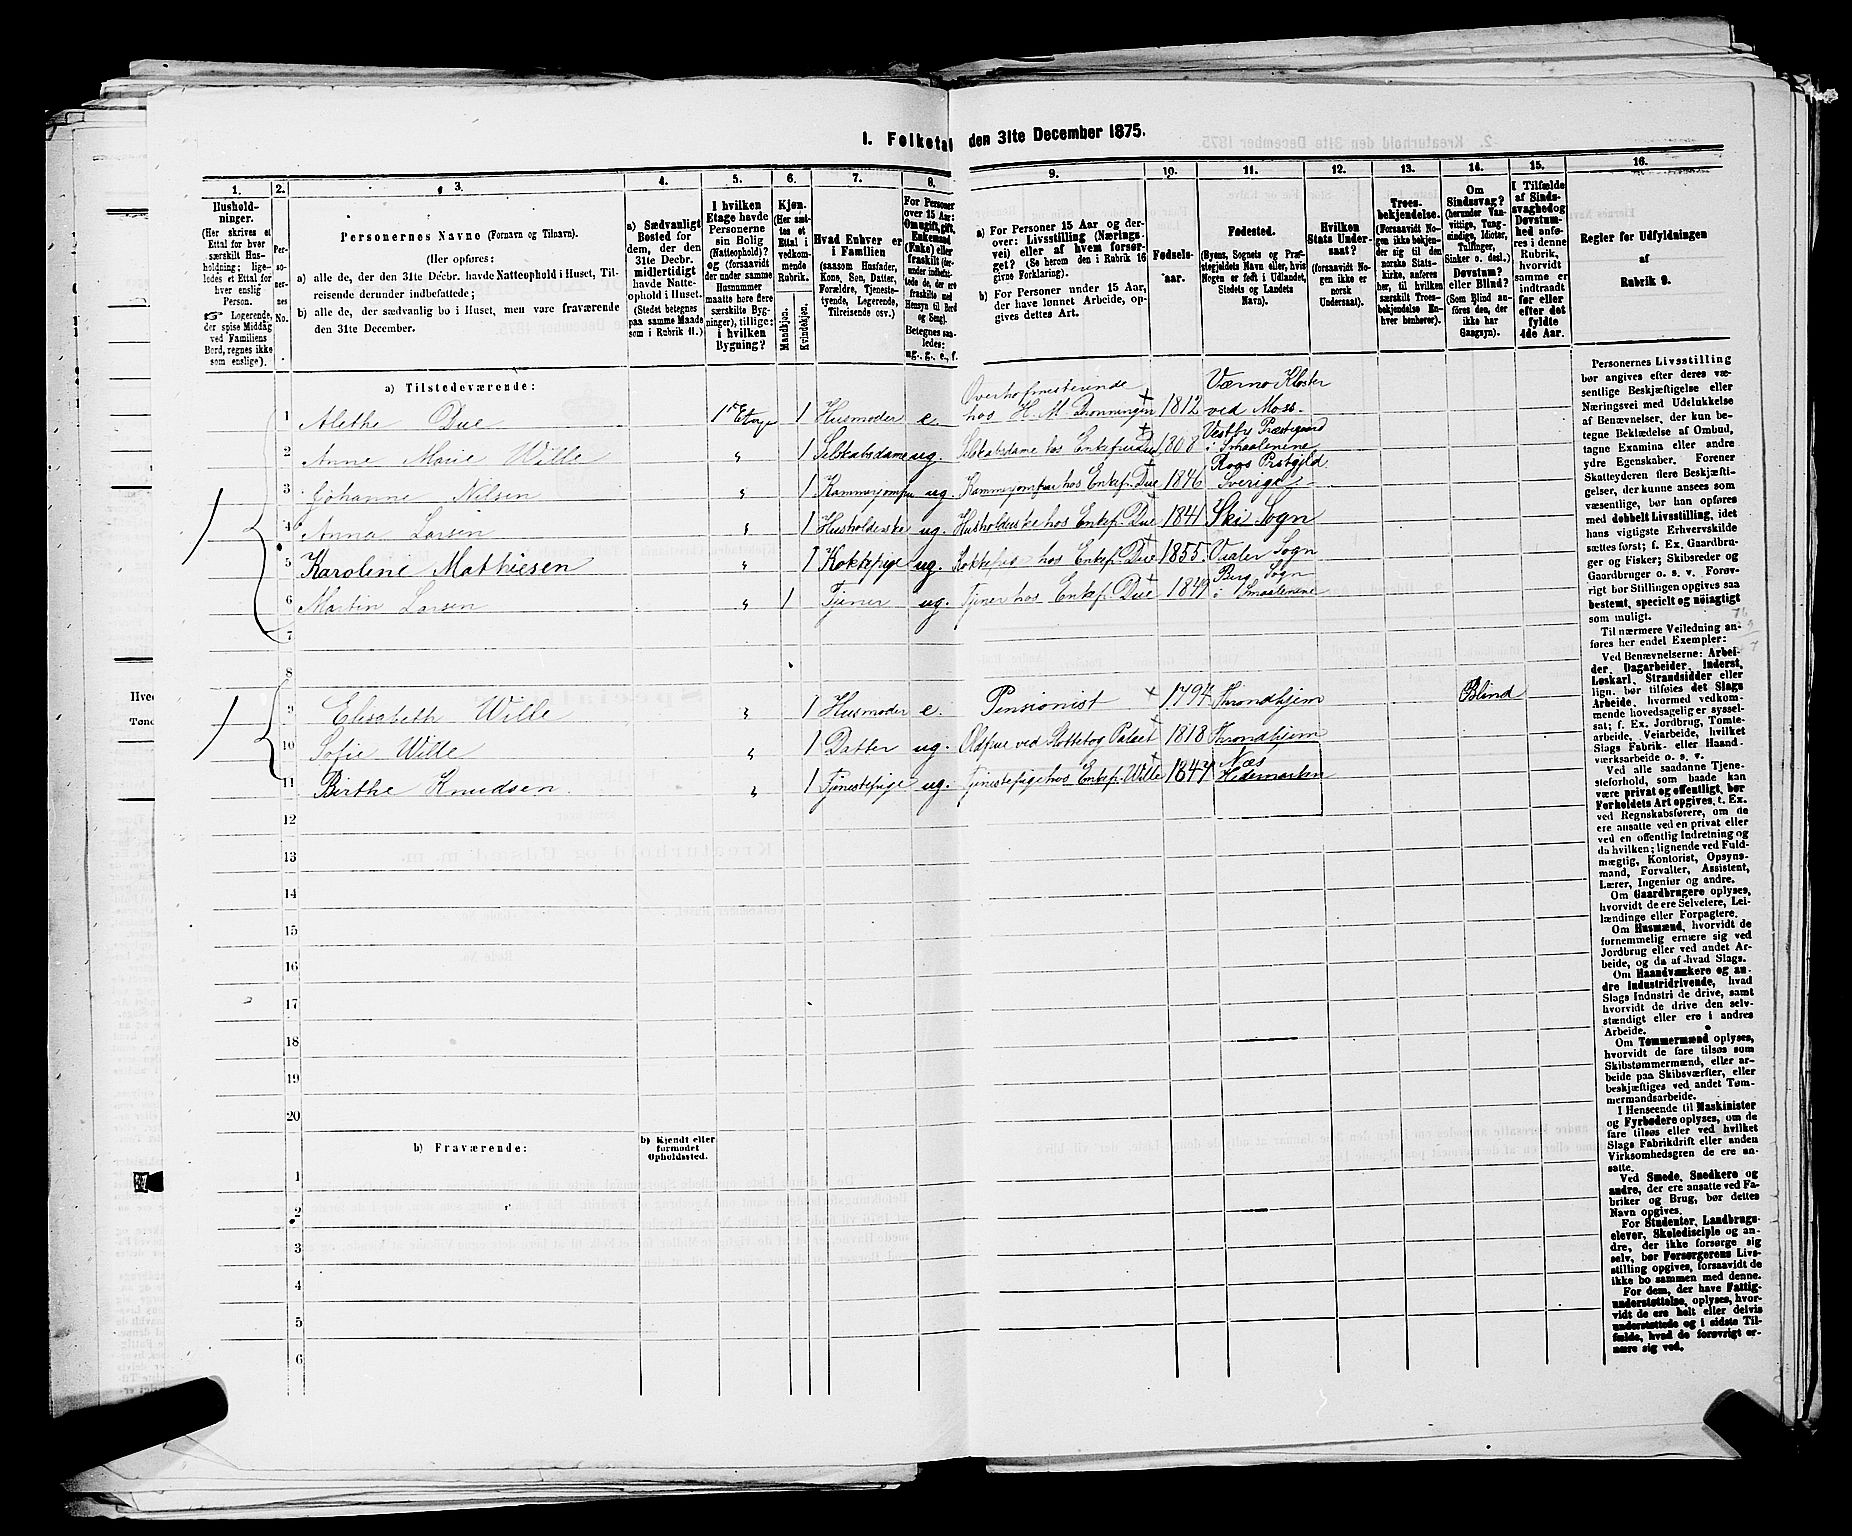 1. Folketal den 31te December 1875.
1. 2. 3. 4. 5. 6. 7. 8. 9. 10. 11. 12. 13. 14. 15. 16.
Hushold-
ninger.
(Her skrives et
Ettal for hver
særskilt Hus-
holdning; lige-
ledes et Ettal
for hver
enslig
Person.
☞ Logerende,
der spise Middag
ved Familiens
Bord, regnes ikke
som enslige).
Per-
so-
ner-
nes
No.
Personernes Navne (Fornavn og Tilnavn).
(Her opføres:
a) alle de, der den 31te Decbr. havde Natteophold i Huset, Til-
reisende derunder indbefattede;
b) alle de, der sædvanlig bo i Huset, men vare fraværende
den 31te December.
a) Sædvanligt
Bosted for
dem, der den
31te Decbr.
midlertidigt
havde Natte-
ophold i Huset.
(Stedet betegnes
paa samme Maade
som i Rubrik 11.)
I hvilken
Etage havde
Personerne
sin Bolig
(Natteophold)?
og (forsaavidt
der under samme
Husnummer
maatte høre flere
særskilte Byg-
ninger), tillige:
i hvilken
Bygning?
Kjøn.
(Her sæt-
tes et
Ettal i
vedkom-
mende
Rubrik.
Mandkjøn.
Kvindekjøn.
Hvad Enhver er
i Familien
(saasom Husfader,
Kone, Søn, Datter,
Forældre, Tjeneste-
tyende, Logerende,
Tilreisende osv.)
For Personer
over 15 Aar:
Om ugift, gift,
Enkemand
(Enke) eller
fraskilt (her-
under indbefat-
tede de, der ere
fraskilte med
Hensyn til Bord
og Seng).
Betegnes saa-
ledes:
ug., g., e., f.
a) For Personer 15 Aar og der-
over: Livsstilling (Nærings-
vei) eller af hvem forsør-
get? (Se herom den i Rubrik 16
givne Forklaring).
b) For Personer under 15 Aar,
der have lønnet Arbeide, op-
gives dettes Art.
Fødsels-
aar.
Fødested.
(Byens, Sognets og Præ-
stegjeldets Navn eller, hvis
Nogen er født i Udlandet,
Stedets og Landets
Navn).
Hvilken
Stats Under-
saat?
(forsaavidt No-
gen ikke er
norsk
Undersaat).
Troes-
bekjendelse.
(Forsaavidt No-
gen ikke bekjen-
der sig til den
norske Stats-
kirke, anføres
her, til hvilken
særskilt Troes-
bekjendelse En-
hver henhører).
Om
Sindssvag?
(herunder Van-
vittige, Tung-
sindige, Idioter,
Tulfinger,
Sinker o. desl.)
Døvstum?
eller Blind?
(Som Blind an-
føres den, der
ikke har
Gangsyn).
I Tilfælde
af Sinds-
svaghed og
Døvstum-
hed anfø-
res i denne
Rubrik,
hvorvidt
samme er
indtraadt
før eller
efter det
fyldte
4de Aar.
Regler for Udfyldningen
af
Rubrik 9.
a) Tilstedeværende:
1 Alethe Due 1ste Etage 1 Husmoder e. Overhofmesterinde hos H. M. Dronningen 1812 Værno Kloster ved Moss.
2 Anne Marie Wille " 1 Selskabsdame ug. Selskabsdame hos Enkefru Due 1808 Vestby Præstegaard i Smaalenene
3 Johanne Nilsen " 1 Kammerjomfru ug. Kammerjomfru hos Enkef. Due 1846 Roos Prstgjld Sverige
4 Anna Larsen " 1 Husholderske ug. Husholderske hos Enkef. Due 1841 Ski Sogn
5 Karoline Mathiesen " 1 Kokkepige ug. Kokkepige hos Enkef. Due 1855 Vaaler Sogn
6 Martin Larsen " 1 Tjener ug. Tjener hos Enkef. Due 1849 Berg Sogn i Smaalenene
7
8
9 Elisabeth Wille " 1 Husmoder e. Pensionist 1794 Throndhjem Blind
10 Sofie Wille " 1 Datter ug. Oldfrue ved Slottet og Palæet 1818 Throndhjem
11 Birthe Knudsen " 1 Tjenestepige ug. Tjenestepige hos Enkef. Wille 1847 Næs Hedemarken
12
13
14
15
16
17
18
19
20
b) Fraværende:
b) Kjendt eller
formodet
Opholdssted.
1
2
3
4
5
6
Personernes Livsstilling
bør angives efter deres væ-
sentlige Beskjæftigelse eller
Næringsvei med Udelukkelse
af Benævnelser, der kun be-
tegne Beklædelse af Ombud,
tagne Examina eller andre
ydre Egenskaber. Forener
Skatteyderen flere Beskjæfti-
gelser, der kunne ansees som
væsentlige, bør han opføres
med dobbelt Livsstilling, idet
hans vigtigste Erhvervskilde
sættes først; f. Ex. Gaardbru-
ger og Fisker; Skibsreder og
Gaardbruger o. s. v. Forøv-
rigt bør Stillingen opgives saa
bestemt, specielt og nöiagtigt
som muligt.
Til nærmere Veiledning an-
føres her endel Exempler:
Ved Benævnelserne: Arbei-
der, Dagarbeider, Inderst,
Løskarl, Strandsidder eller
lign. bør tilføies det Slags
Arbeide, hvormed vedkom-
mende hovedsagelig er syssel-
sat; f. Ex. Jordbrug, Tomte-
arbeide, Veiarbeide, hvilket
Slags Fabrik- eller Haand-
værksarbeide o. s. v.
Ved alle saadanne Tjene-
steforhold, som baade kan
være privat og offentligt, bør
Forholdets Art opgives, t. Ex.
ved Regnskabsførere, om de
ere ansatte ved en privat eller
ved en offentlig Indretning og
da hvilken; lignende ved Fuld-
mægtig, Kontorist, Opsyns-
mand, Forvalter, Assistent,
Lærer, Ingeniør og andre.
Om Gaardbrugere oplyses,
hvorvidt de ere Selveiere, Lei-
lændinge eller Forpagtere.
Om Husmænd, hvorvidt de
fornemmelig ernære sig ved
Jordbrug eller ved andet Ar-
beide, og da af hvad Slags.
Om Haandværkere og an-
dre Industridrivende, hvad
Slags Industri de drive, samt
hvorvidt de drive den selv-
stændigt eller ere i andres
Arbeide.
Om Tømmermænd oplyses,
hvorvidt de fare tilsøs som
Skibstømmermænd, eller ar-
beide paa Skibsværfter, eller
beskjæftiges ved andet Tøm-
mermandsarbeide.
I Henseende til Maskinister
og Fyrbødere oplyses, om de
fare tilsøs eller ved hvilket
Slags Fabrikdrift eller anden
Virksomhedsgren de ere an-
satte.
Ved Smede, Snedkere og
andre, der ere ansatte ved Fa-
briker og Brug, bør dettes
Navn opgives.
For Studenter, Landbrugs-
elever, Skoledisciple og an-
dre, der ikke forsørge sig
selv, bør Forsørgerens Livs-
stilling opgives, forsaavidt de
ikke bo sammen med denne.
For dem, der have Fattig-
understøttelse, oplyses, hvor-
vidt de ere helt eller delvis
understøttede og i sidste Til-
fælde, hvad de forøvrigt er-
nære sig ved.